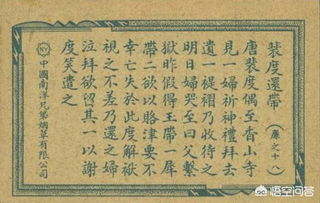 裴度還帶
(廉之十)
唐裴度偶至香山寺
見一婦祈神禮拜去
遺一緹褶乃收待之
明日婦哭至曰父繫
獄昨假得玉帶一犀
帶二欲以賂津要不
幸亡失於此度解袱
視之不差乃還之婦
泣拜欲留其一以謝
度笑遣之
中國南洋兄弟烟草有限公司
悟空问答